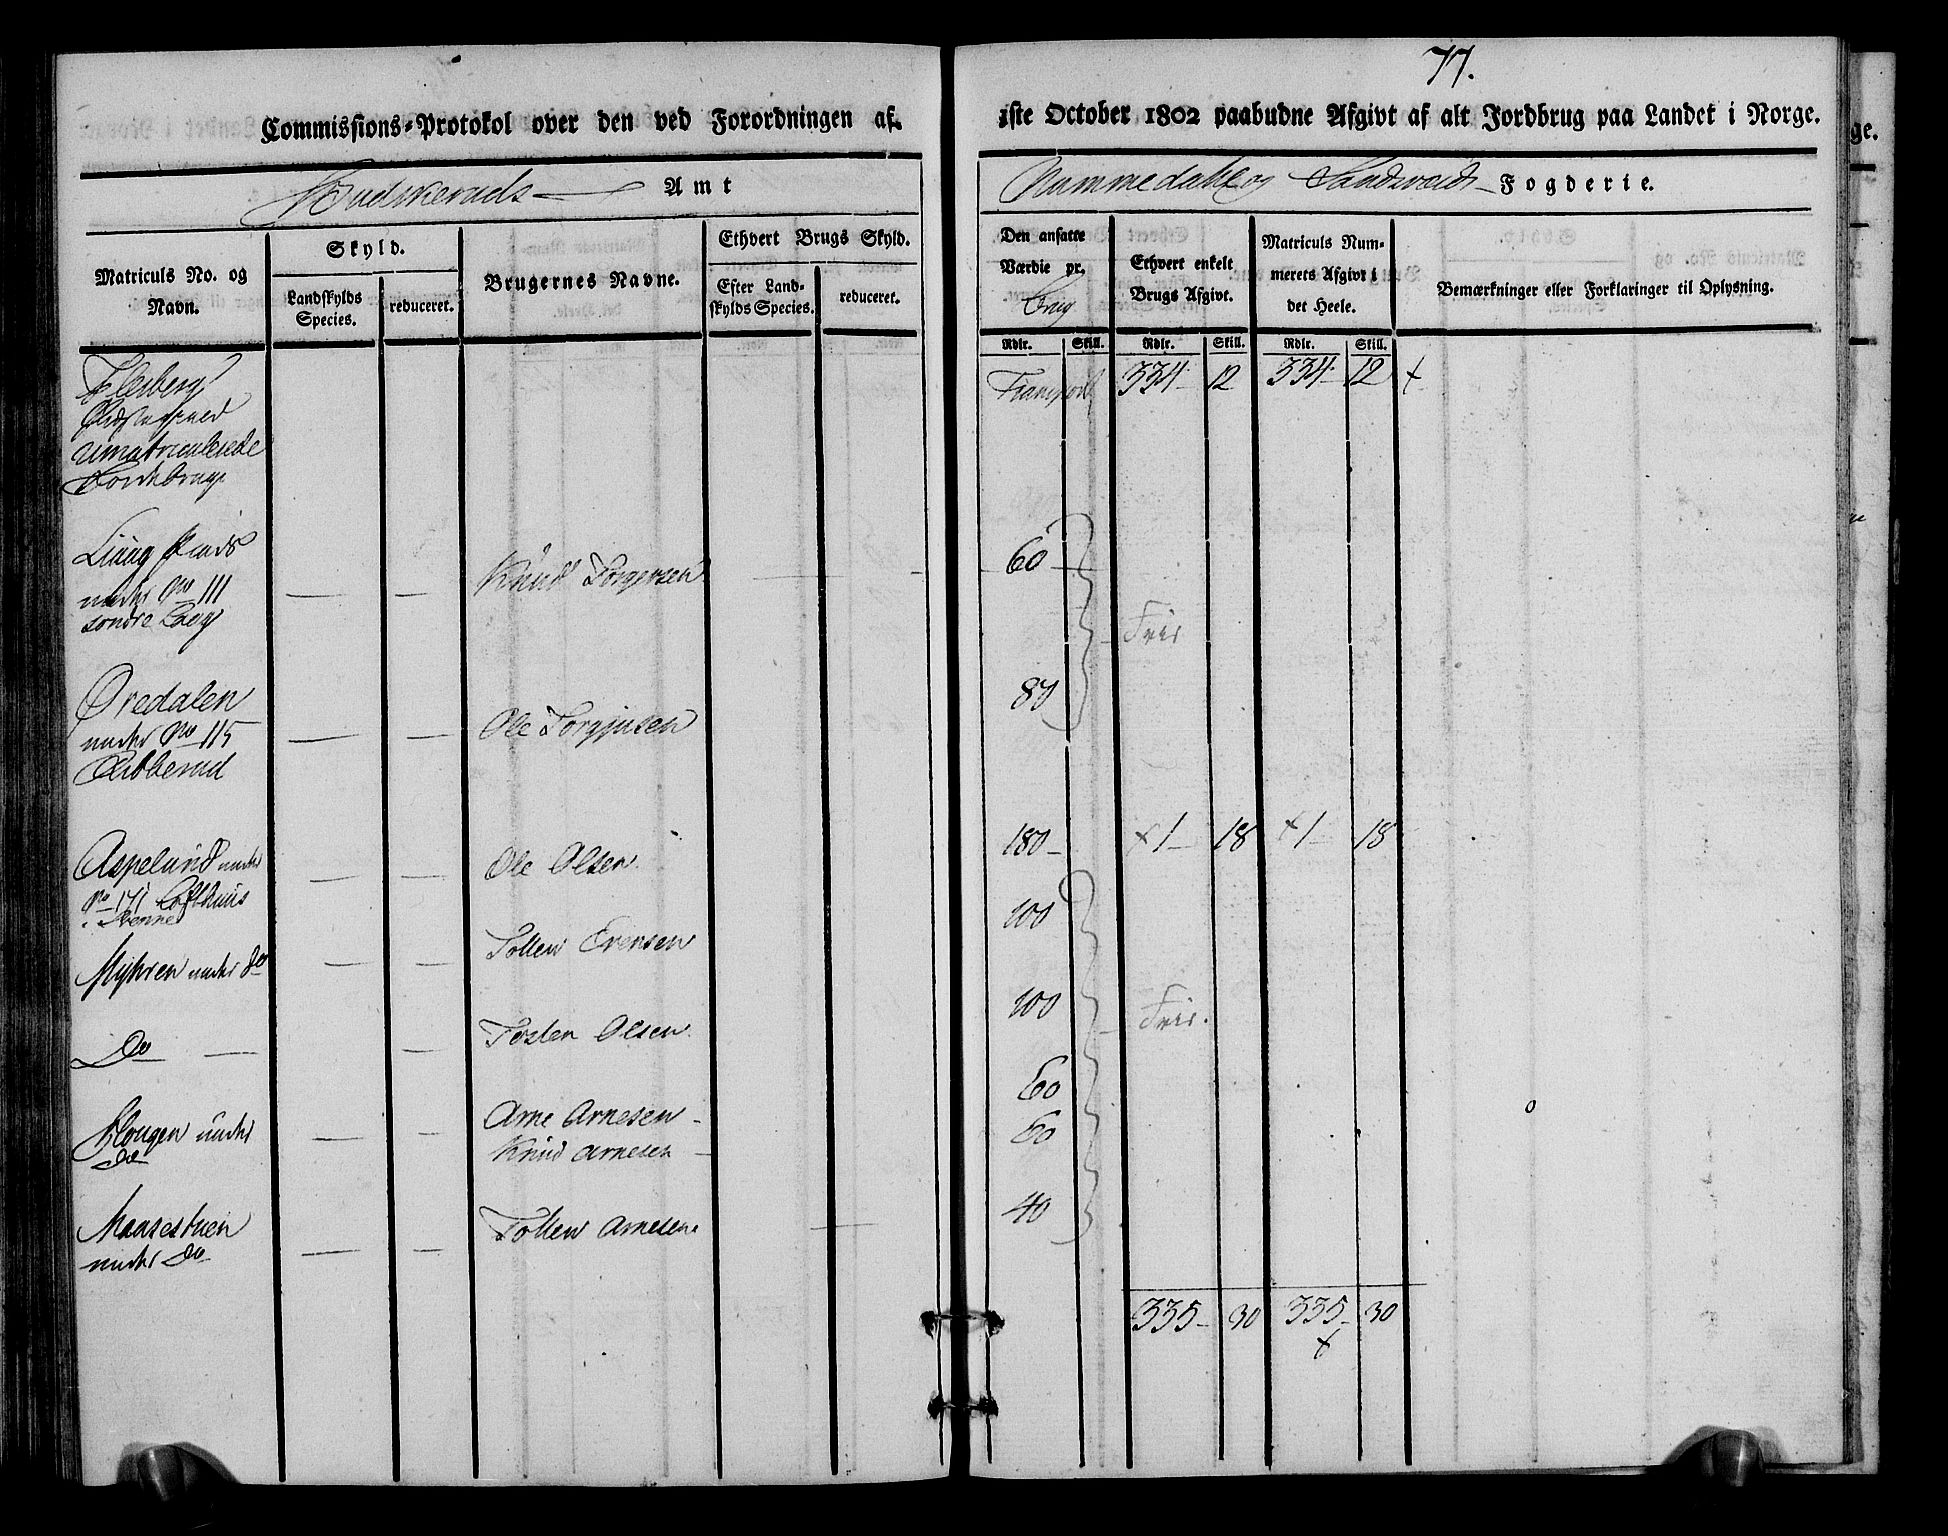 77.
Commissions-Protokol over den ved Forordningen af
1ste October 1802 paabudne Afgivt af alt Jordbrug paa Landet i Norge.
Budskeruds Amt
Nummedahl og Sandsværds Fogderie.
Matriculs No. og Navn.
Skyld.
Landskylds Species.
reduceret.
Brugernes Navne.
Ethvert Brugs Skyld.
Efter Landskylds Species.
reduceret.
Den ansatte Værdie pr. Brug
Ethvert enkelt Brugs Afgivt.
Matriculs Nummerets Afgivt i det Heele.
Bemærkninger eller Forklaringer til Oplysning.
Rdlr. Skill. Rdlr. Skill. Rdlr. Skill.
Transport 334 12 334 12 +
Flesberg
Præstegield
umatriculerede
Jordbruge
Liaug Plads
under No 111
søndre Laeg
Knud Torgersen
60
Frie
Øvedalen
under No 115
Ole Torgjusen
80
Aspelund under
No 171 Lofthuus
i Svenne
Ole Olsen
180 + 1 18 + 1 18
Myhren under do
Tollew Evensen
100
Do
Tosten Olsen
100
Frie.
Hougen under
do
Arne Arnesen
Knud Arnesen
60
60
Maasestuen
under do
Tollew Arnesen
40
335 30 335 30
+